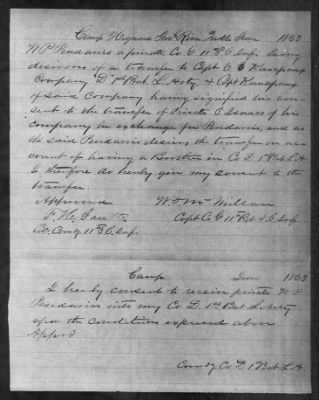 Camp 1863
W P Pendarvis a private Co. C 11 S C Inf. being
desirous of a transfer to Capt C E Kanapaux
Company "D" 1st Bat. L. Arty, & Capt Kanapaux
of said Company having signified his con-
sent to the transfer of Private Isaacs of his
company in exchange for Pendarvis, and as
the said Pendarvis desires the transfer on ac-
count of having a Brother in Co D. 1 Bat L A
I therefore do hereby give my consent to the
transfer
Approved W McMillan
F. H. Gantt Capt Co C 11 Rgt S C Inf
Comdg 11 S C Inf.
Camp 1863
I hereby consent to receive private W P
Pendarvis into my Co D. 1st Bat L Arty
upon the conditions expressed above
Appd
Comdg Co D 1 Bat L A